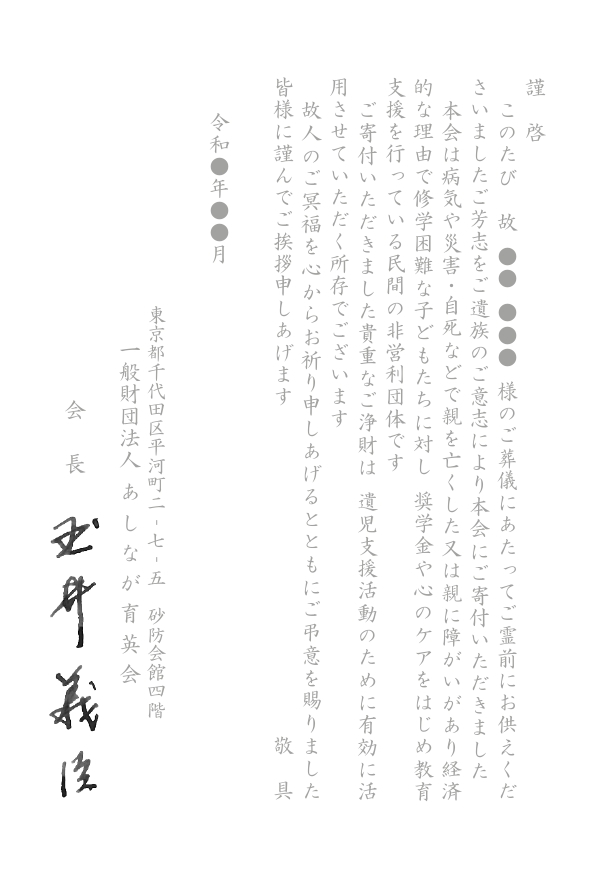 謹啓
このたび 故 ●● ●●● 様のご葬儀にあたってご霊前にお供えくだ
さいましたご芳志をご遺族のご意志により本会にご寄付いただきました
本会は病気や災害・自死などで親を亡くした又は親に障がいがあり経済
的な理由で修学困難な子どもたちに対し 奨学金や心のケアをはじめ教育
支援を行っている民間の非営利団体です
ご寄付いただきました貴重なご浄財は 遺児支援活動のために有効に活
用させていただく所存でございます
故人のご冥福を心からお祈り申しあげるとともにご弔意を賜りました
皆様に謹んでご挨拶申しあげます 敬具
令和●年●●月
東京都千代田区平河町二-七-五 砂防会館四階
一般財団法人 あしなが育英会
会長 玉井義臣